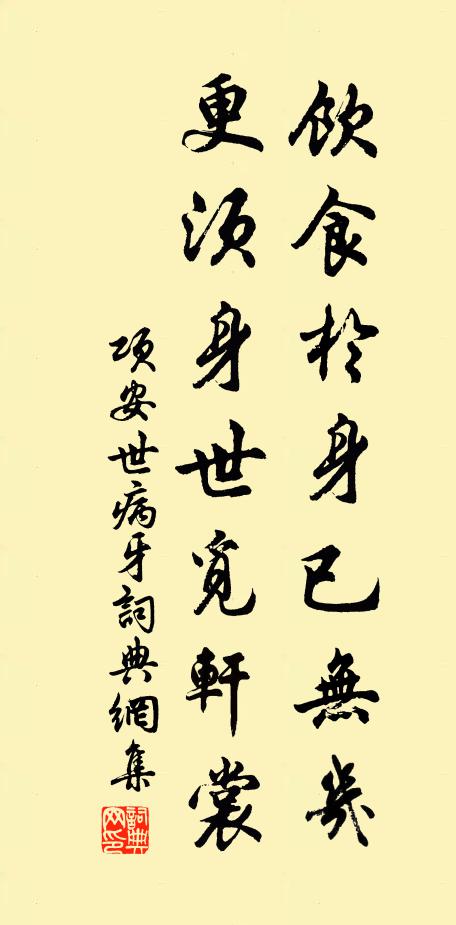 飲食於身已無幾
更須身世覓軒裳
項安世病牙詞典網集
詞典網印